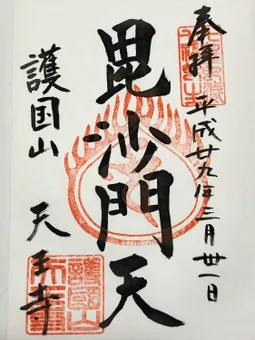 奉拝
平成廿九年三月卅一日
毘沙門天
護国山
天王寺
護國山